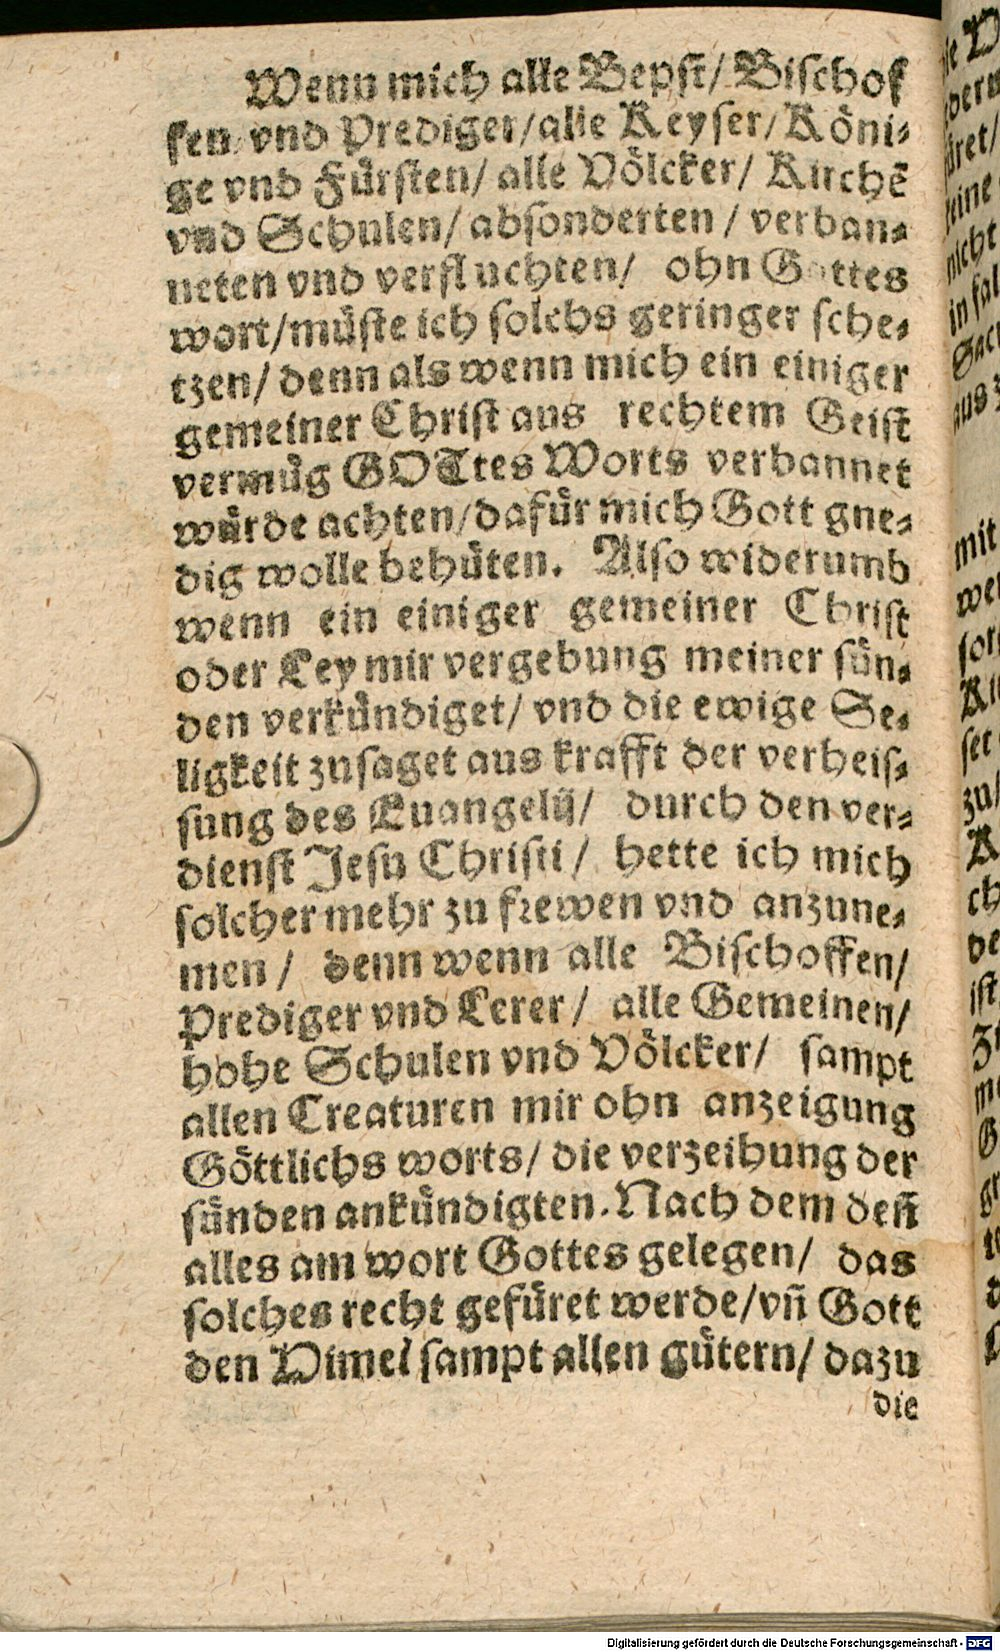 Wenn mich alle Bepst/ Bischof
fen vnd Prediger/alle Keyser/Köni-
ge vnd Fürsten/ alle Völcker/ Kirchē
vnd Schulen/ absonderten / verban-
neten vnd verfluchten/ ohn Gottes
wort/müste ich solchs geringer sche-
tzen/ denn als wenn mich ein einiger
gemeiner Christ aus rechtem Geist
vermüg GOTtes Worts verbannet
würde achten/dafür mich Gott gne-
dig wolle behüten. Also widerumb
wenn ein einiger gemeiner Christ
oder Ley mir vergebung meiner sün-
den verkündiget/ vnd die ewige Se-
ligkeit zusaget aus krafft der verheis-
sung des Euangelij/ durch den ver-
dienst Jesu Christi/ hette ich mich
solcher mehr zu frewen vnd anzune-
men/ denn wenn alle Bischoffen/
Prediger vnd Lerer/ alle Gemeinen/
hohe Schulen vnd Völcker/ sampt
allen Creaturen mir ohn anzeigung
Göttlichs worts/ die verzeihung der
sünden ankündigten. Nach dem deñ
alles am wort Gottes gelegen/ das
solches recht gefüret werde/vñ Gott
den Himel sampt allen gütern/ dazu
die
mit
nicht
aus
Digitalisierung gefördert durch die Deutsche Forschungsgemeinschaft - DFG